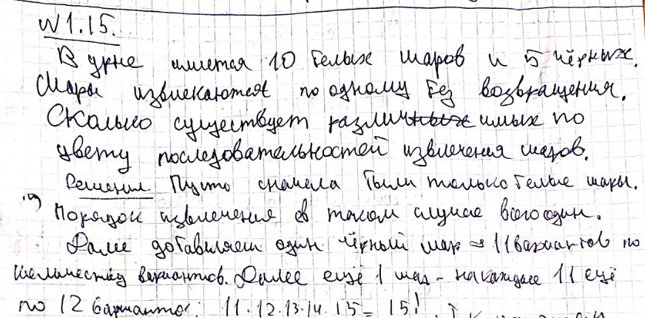 N 1.15.
В урне имеется 10 белых шаров и 5 чёрных.
Шары извлекаются по одному без возвращения.
Сколько существует различных имых по
цвету последовательностей извлечения шаров.
Решение Пусть сначала были только белые шары.
Порядок извлечения в таком случае всего один.
Далее добавляем один чёрный шар ⇒ 11 вариантов по
вариантов. Далее ещё 1 шар - на каждые 11 ещё
по 12 вариантов: 11·12·13·14·15 = 15!